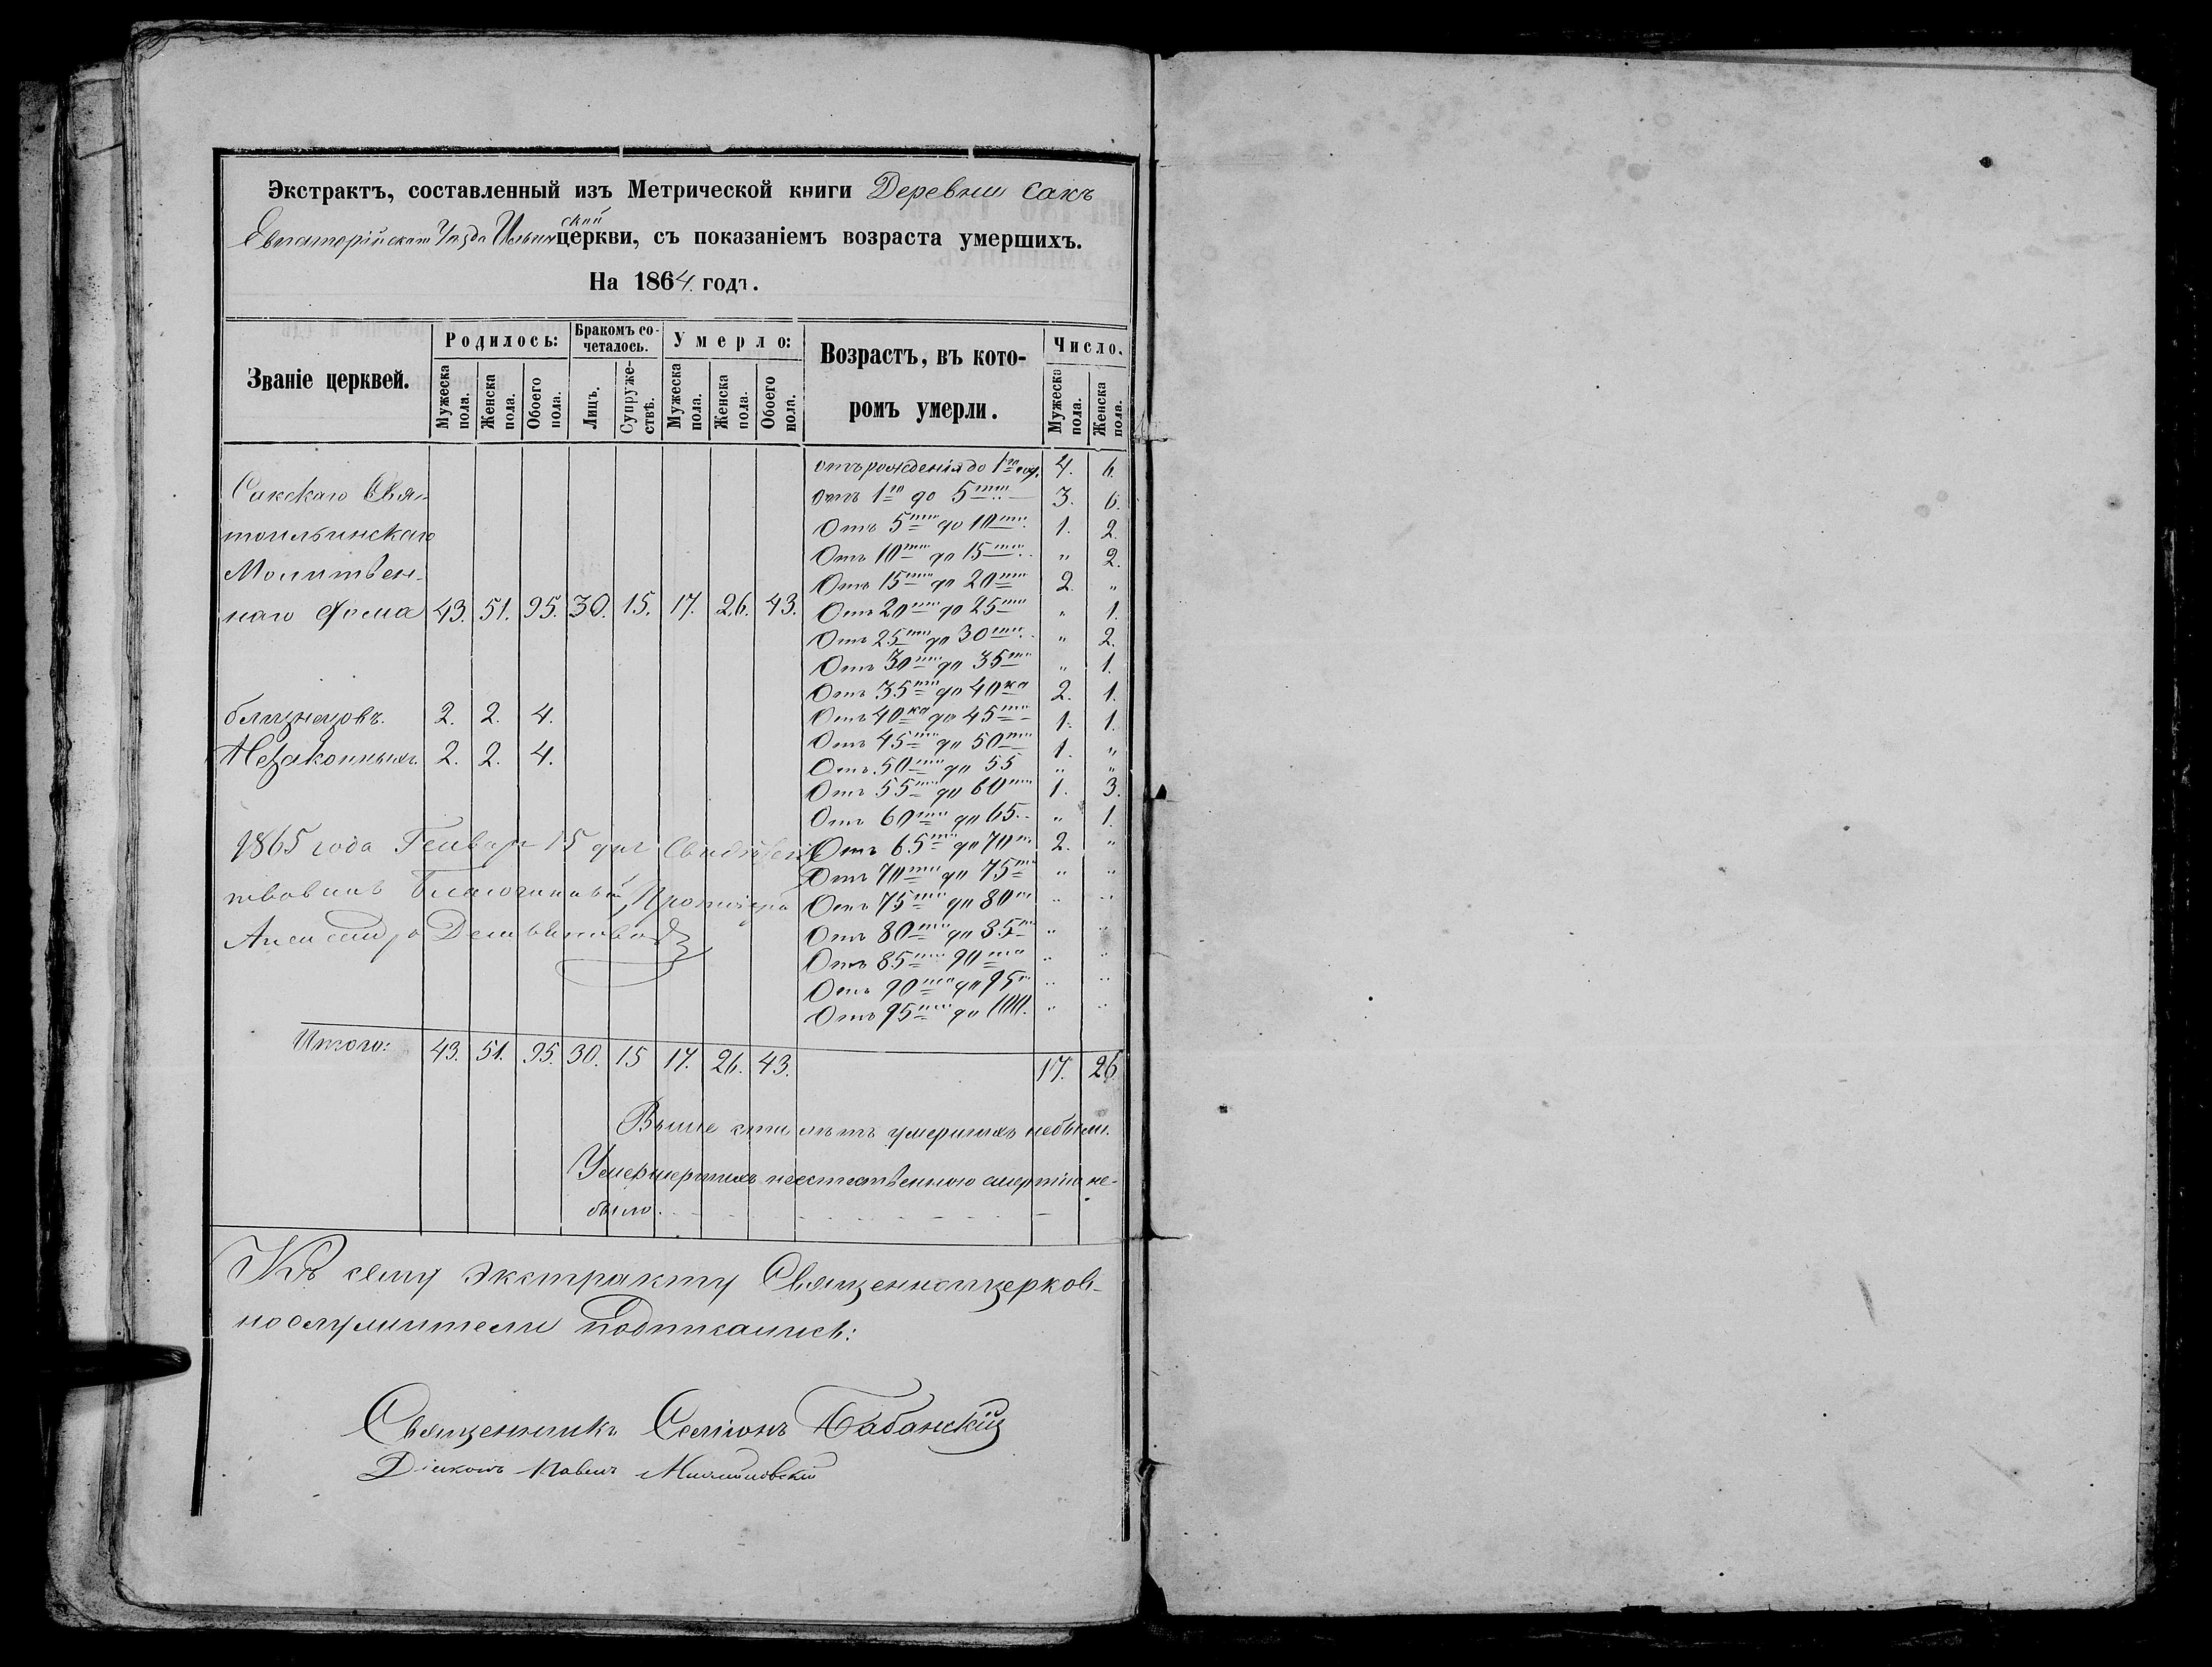 Экстрактъ, составленный изъ Метрической книги Деревни Сакъ
Евпаторійскаго Уѣзда Ильинской церкви, съ показаніемъ возраста умершихъ.
На 1864. годъ.
Званіе церквей.
Родилось:
Бракомъ сочеталось.
Умерло:
Возрастъ, въ которомъ умерли.
Число.
Мужеска пола.
Женска пола.
Обоего пола.
Лицъ.
Супружествъ.
Мужеска пола.
Женска пола.
Обоего пола.
Мужеска пола.
Женска пола.
отъ рожденія до 1го год. 4. 6.
Сакскаго Свя-
отъ 1го до 5ти 3. 6.
тоильинскаго
Отъ 5ти до 10ти 1. 2.
Молитвен-
Отъ 10ти до 15ти " 2.
Отъ 15ти до 20ти 2. "
наго Дома 43. 51. 95. 30. 15. 17. 26. 43.
Отъ 20ти до 25ти " 1.
Отъ 25ти до 30ти " 2.
Отъ 30ти до 35ти " 1.
Отъ 35ти до 40ка 2. 1.
близнецовъ. 2. 2. 4.
Отъ 40ка до 45ти 1. 1.
Незаконныхъ. 2. 2. 4.
Отъ 45ти до 50ти 1. "
Отъ 50ти до 55 " "
Отъ 55ти до 60ти 1. 3.
Отъ 60ти до 65 " 1.
Отъ 65ти до 70ти 2. "
Отъ 70ти до 75ти " "
Отъ 75ти до 80ти " "
Отъ 80ти до 85ти " "
Отъ 85ти 90та " "
Отъ 90та до 95ти " "
Отъ 95ти до 100. " "
1865 года Генваря 15 дня Свидѣтель-
ствовалъ Благочинный, Протоіерей
Александръ
Итого: 43. 51. 95. 30. 15 17. 26. 43. 17. 26
Выше ста лѣтъ умершихъ небыли.
Умершершихъ неестественною смертію не-
было.
Къ сему экстракту Священноицерков-
нослужители подписались:
Священникъ Симіонъ Бабанскій
Діаконъ Павелъ